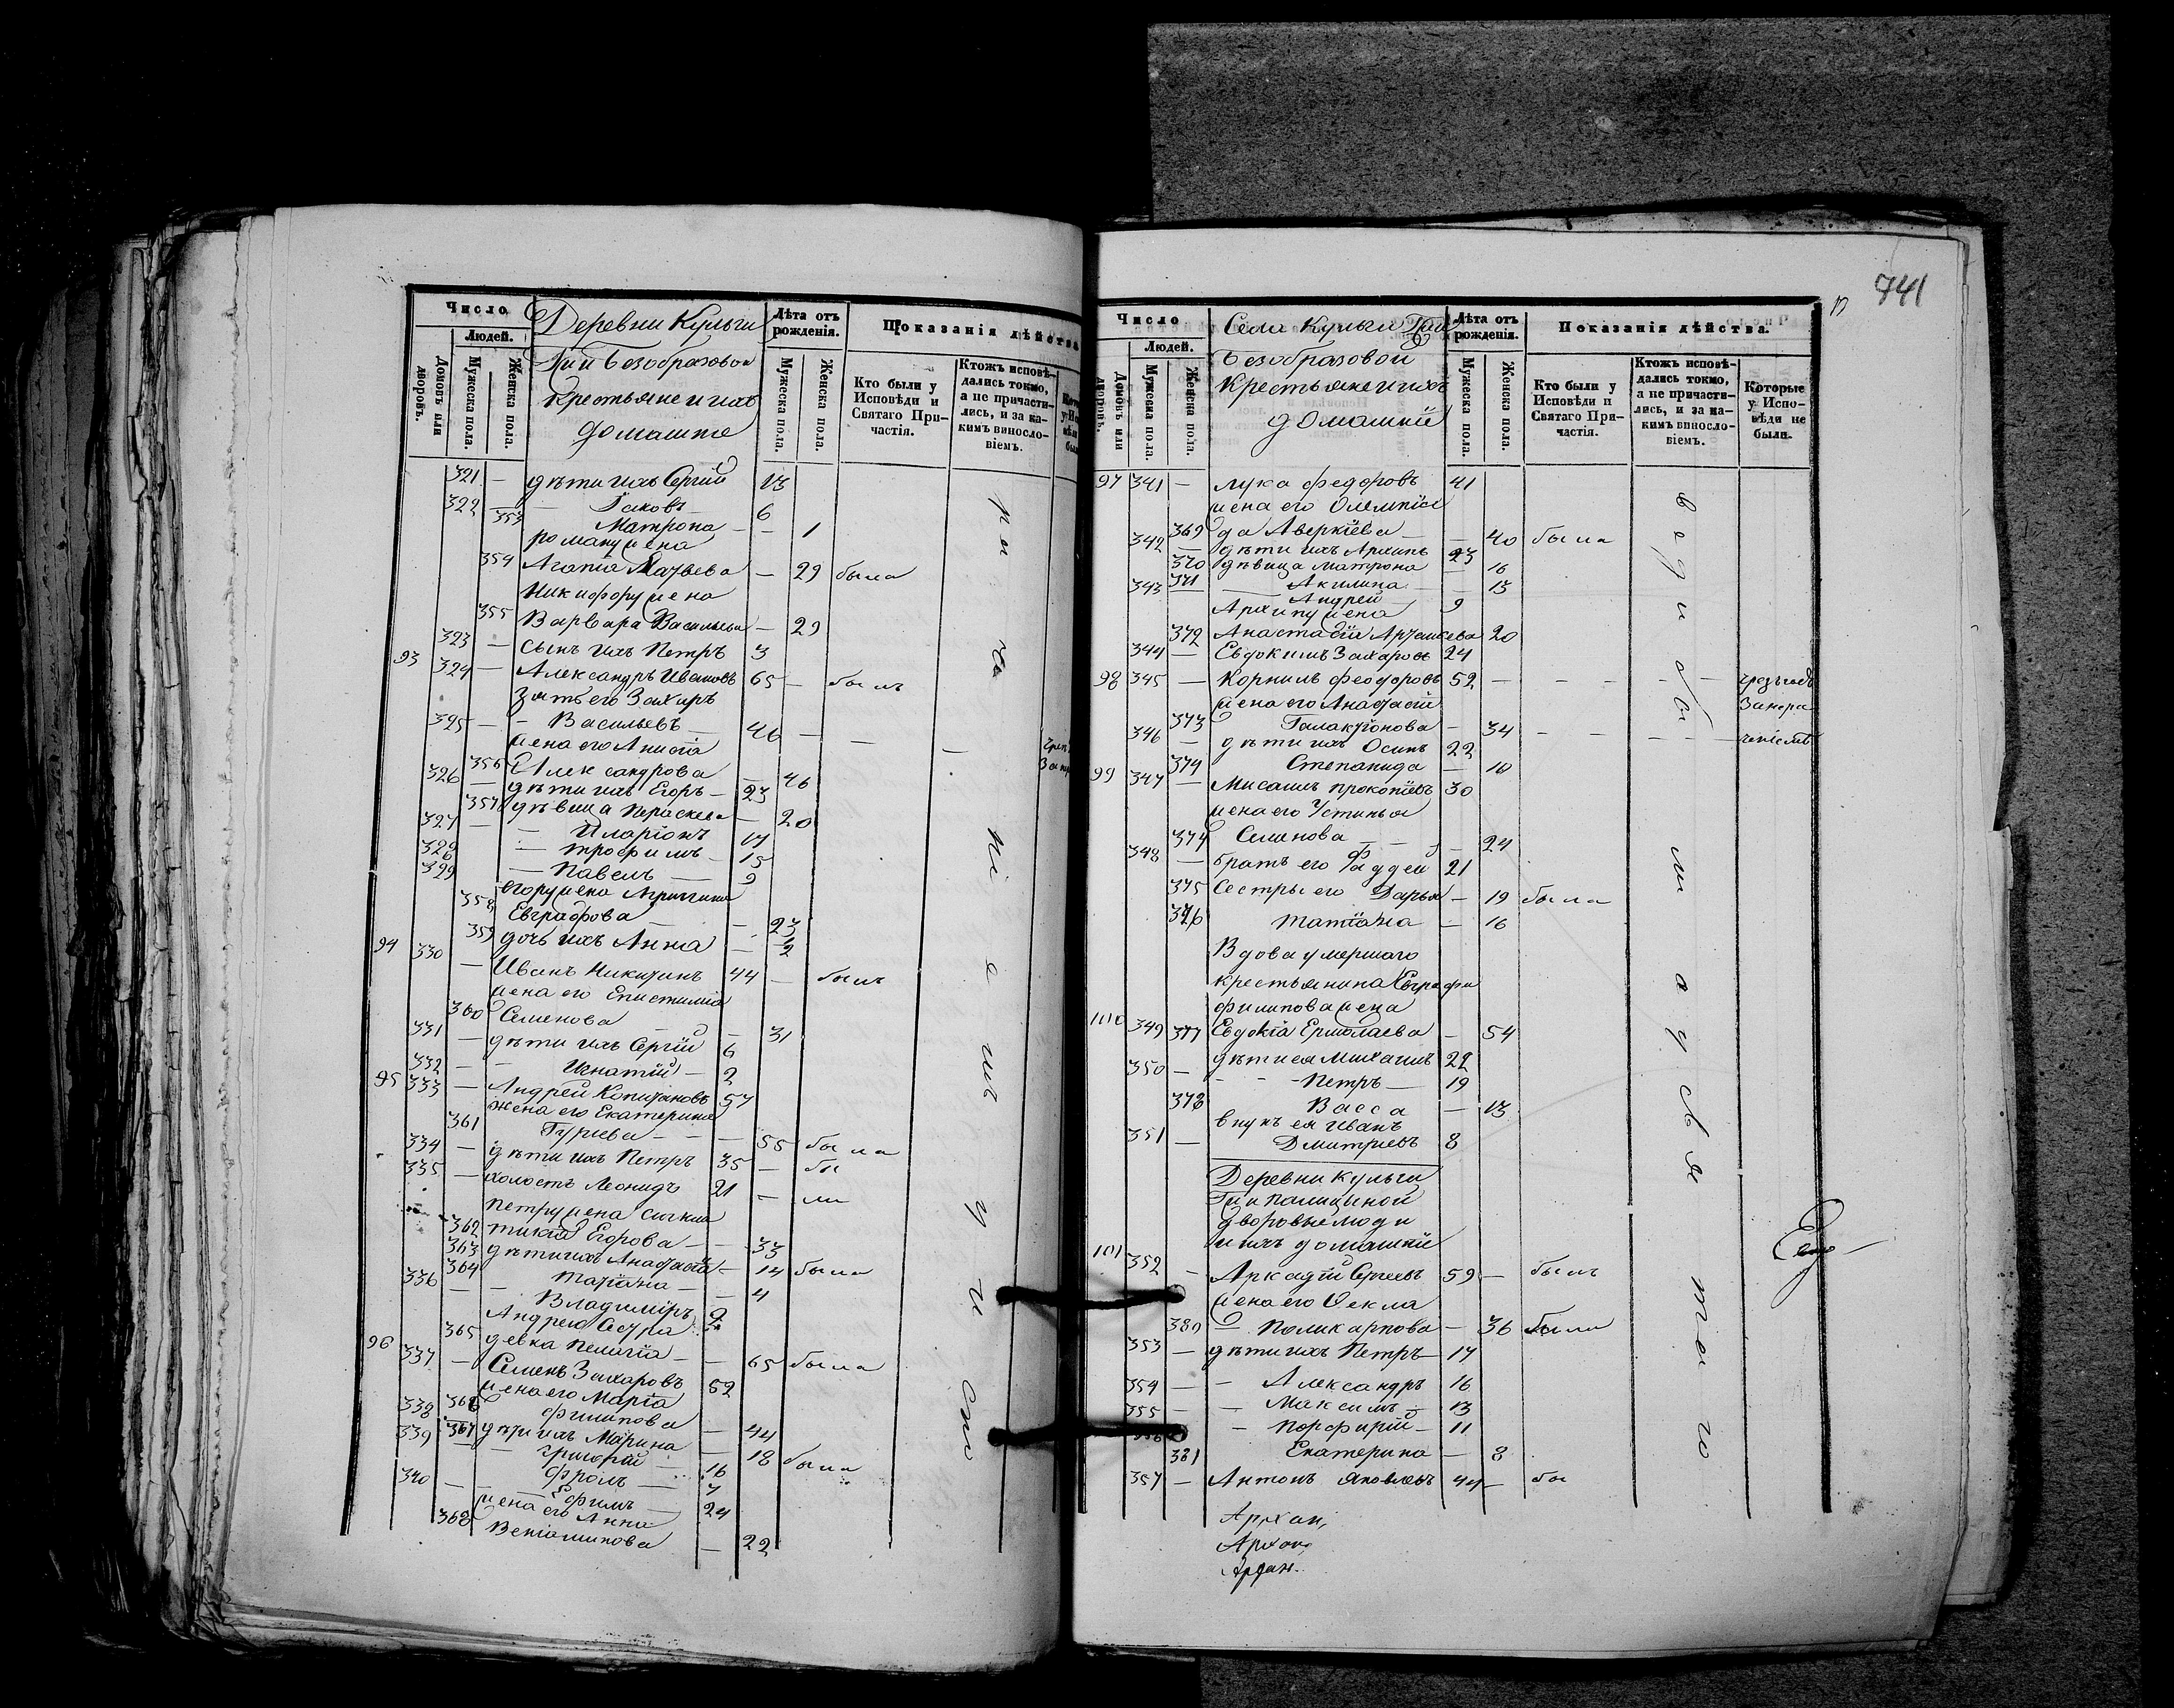 Число
Людей.
Домовъ или дворовъ.
Мужеска пола.
Женска пола.
Деревни Кульги
Гжи Безобразовой
Крестьяне и ихъ
домашніе
Лѣта отъ рожденія.
Мужеска пола.
Женска пола.
Показанія дѣйства
Кто были у Исповѣди и Святаго При-частія.
Ктожъ исповѣ-дались токмо, а не причасти-лись, и за ка-кимъ винословіемъ.
321 — дѣти ихъ Сергій 13
322 — Іаковъ 6
353 Матрона — 1
роману жена
354 Агапія Матвѣева — 29 была
Никифору жена
355 Варвара Васильева — 29
323 — сынъ ихъ Петръ 3
93 324 — Александръ Ивановъ 65 — былъ
Зять его Захаръ
325 — Васильевъ 46 —
жена его Анисія
356 Александрова — 46
326 — дѣти ихъ Егоръ — 23
357 дѣвица Параскева — 20
327 — Иларіонъ 17
328 — Трофимъ — 15
329 — Павелъ — 9
егору жена Агрипина
358 Евграфова — 23
359 дочь ихъ Анна — 2
94 330 — Иванъ Никитинъ 44 — былъ
жена его Епистимія
360 Семенова — 31
331 — дѣти ихъ Сергій 6
332 — Игнатій — 2
95 333 — Андрей Капитановъ 57
жена его Екатерина
361 Гурьева — 55 была
334 — дѣти ихъ Петръ 35 — бы
335 — холостъ Леонидъ 21 — ли
Петру жена Синкли
362 тикія Егорова — 33
363 дѣти ихъ Анастасія — 14 была
364 Татіана — 4
336 — Владиміръ 2
Андрею сестра
365 девка Пелагія — 65 была
96 337 — Семенъ Захаровъ 52
жена его Марія
366 Филипова — 44
338 367 дѣти ихъ Марина — 18 была
339 — Григорій — 16
Фролъ — 7
340 — Ефимъ 24
жена его Анна
368 Веніаминова — 22
741
Число
Людей.
Домовъ или дворовъ.
Мужеска пола.
Женска пола.
Села Кульги Гжи
Безобразовой
Крестьяне и ихъ
домашніе
Лѣта отъ рожденія.
Мужеска пола.
Женска пола.
Показанія дѣйства.
Кто были у Исповѣди и Святаго При-частія.
Ктожъ исповѣ-дались токмо, а не причасти-лись, и за ка-кимъ винословіемъ.
Которые у Испо-вѣди не были.
97 341 — Лука Федоровъ 41
жена его Олимпіа
369 да Аверкіева — 40 была
342 — дѣти ихъ Архипъ 23
370 дѣвица Матрона — 16
371 Акилина — 13
343 — Андрей — 9
Архипу жена
372 Анастасія Артамкева 20
344 — Евдокимъ Захаровъ 24
98 345 — Корнилъ Феодоровъ 52 — — — —
жена его Анастасія
373 Галактіонова — 34
346 — дѣти ихъ Осипъ 22
374 Степанида — 10
99 347 — Мисаилъ Прокопіевъ 30
жена его Устинья
374 Семенова — 24
348 — братъ его Фаддей 21
375 Сестры его Дарья — 19 была
376 Татіана — 16
Вдова умершаго
крестьянина Евграфа
Филипова жена
100 349 377 Евдокія Ермолаева — 54
350 — дѣти ея Михаилъ 22
Петръ — 19
378 Васса — 13
внукъ ея Иванъ
351 — Дмитріевъ 8
Деревни Кульги
Гжи Палицыной
дворовые люди
и ихъ домашніе
101 352 — Аркадій Сергеевъ 59 — былъ
жена его Фекла
380 Поликарпова — 36 была
353 — дѣти ихъ Петръ — 17
354 — Александръ 16
355 — Максимъ — 13
356 — Порфирій — 11
381 Екатерина — 8
357 — Антонъ Яковлевъ 44 — бы
Архан,
Архан